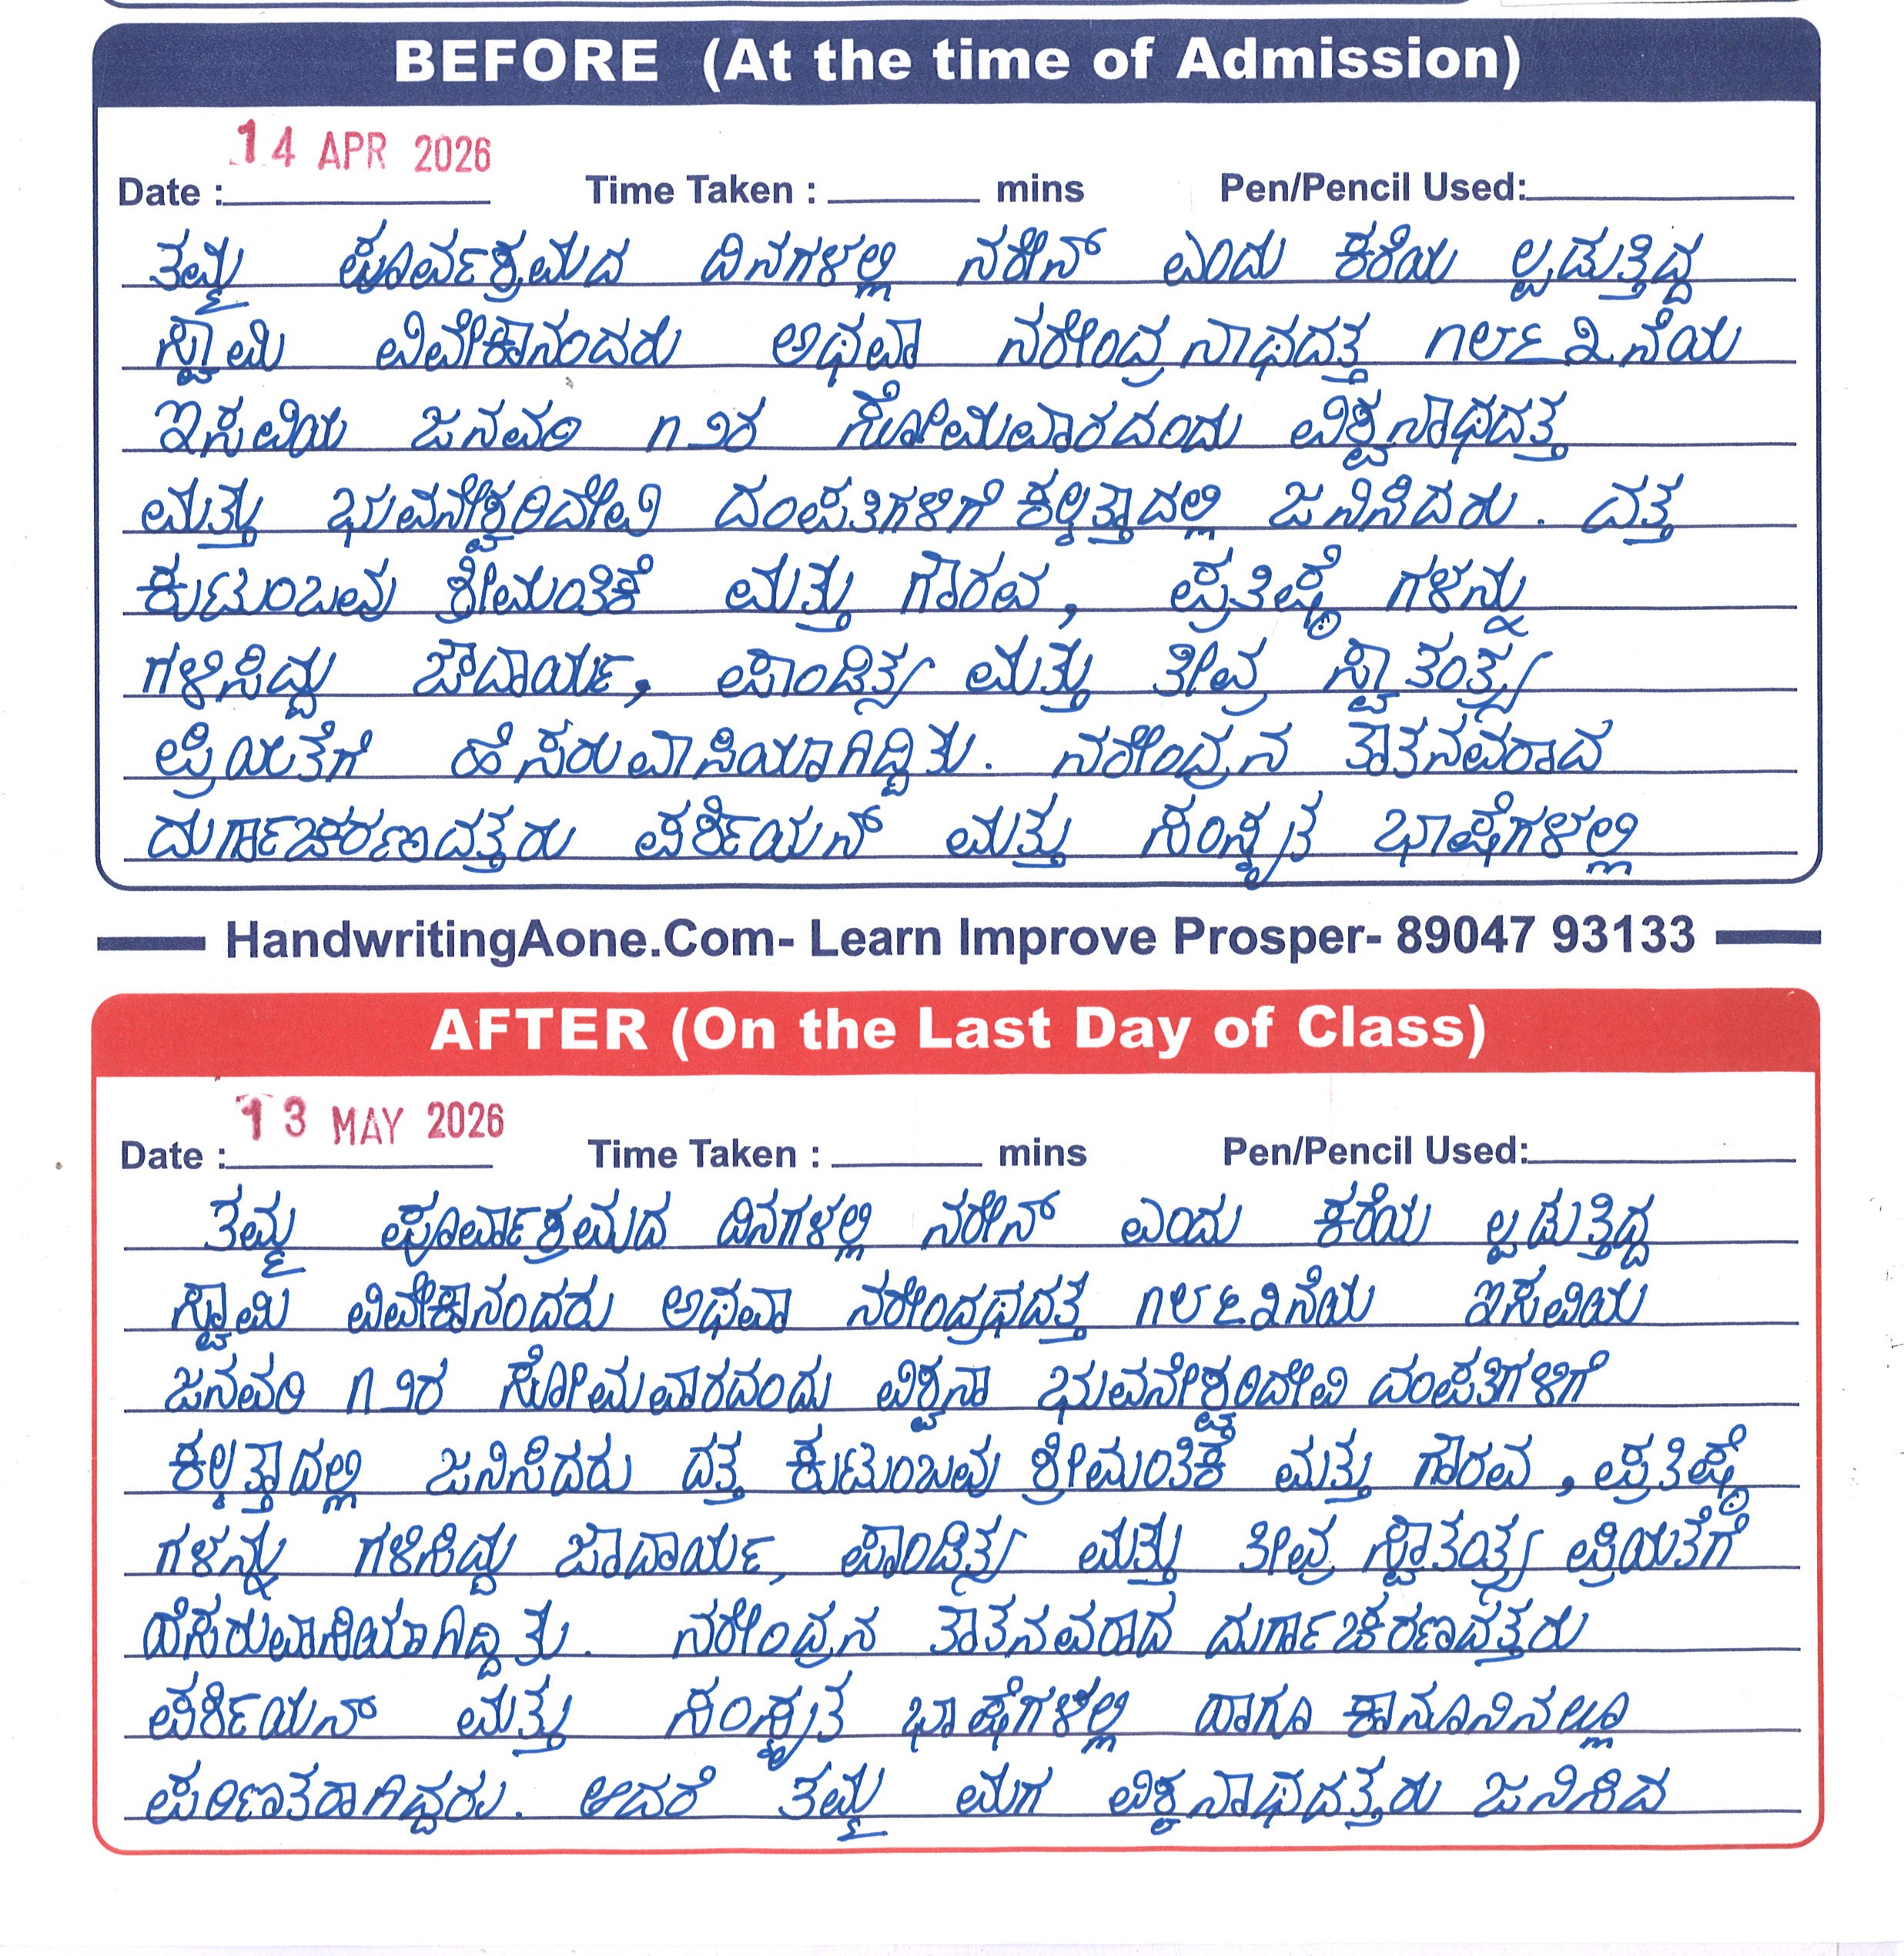 BEFORE (At the time of Admission)
14 APR 2026
Date : Time Taken : mins Pen/Pencil Used:
ತಮ್ಮ ಪೂರ್ವಶ್ರಮದ ದಿನಗಳಲ್ಲಿ ನರೇನ್ ಎಂದು ಕರೆಯ ಲ್ಪಡುತ್ತಿದ್ದ
ಸ್ವಾಮಿ ವಿವೇಕಾನಂದರು ಅಥವಾ ನರೇಂದ್ರ ನಾಥದತ್ತ ೧೮೬೩ನೆಯ
ಇಸವಿಯ ಜನವರಿ ೧೨ರ ಸೋಮವಾರದಂದು ವಿಶ್ವನಾಥದತ್ತ
ಮತ್ತು ಭುವನೇಶ್ವರಿದೇವಿ ದಂಪತಿಗಳಿಗೆ ಕಲ್ಕತ್ತಾದಲ್ಲಿ ಜನಿಸಿದರು. ದತ್ತ
ಕುಟುಂಬವು ಶ್ರೀಮಂತಿಕೆ ಮತ್ತು ಗೌರವ, ಪ್ರತಿಷ್ಠೆ ಗಳನ್ನು
ಗಳಿಸಿದ್ದು ಔದಾರ್ಯ, ಪಾಂಡಿತ್ಯ ಮತ್ತು ತೀವ್ರ ಸ್ವಾತಂತ್ರ್ಯ
ಪ್ರಿಯತೆಗೆ ಹೆಸರುವಾಸಿಯಾಗಿದ್ದಿತು. ನರೇಂದ್ರನ ತಾತನವರಾದ
ದುರ್ಗಾಚರಣದತ್ತರು ಪರ್ಶಿಯನ್ ಮತ್ತು ಸಂಸ್ಕೃತ ಭಾಷೆಗಳಲ್ಲಿ
HandwritingAone.Com- Learn Improve Prosper- 89047 93133
AFTER (On the Last Day of Class)
13 MAY 2026
Date : Time Taken : mins Pen/Pencil Used:
ತಮ್ಮ ಪೂರ್ವಾಶ್ರಮದ ದಿನಗಳಲ್ಲಿ ನರೇನ್ ಎಂದು ಕರೆಯ ಲ್ಪಡುತ್ತಿದ್ದ
ಸ್ವಾಮಿ ವಿವೇಕಾನಂದರು ಅಥವಾ ನರೇಂದ್ರಥದತ್ತ ೧೮೬೩ನೆಯ ಇಸವಿಯ
ಜನವರಿ ೧೨ರ ಸೋಮವಾರದಂದು ವಿಶ್ವನಾ ಭುವನೇಶ್ವರಿದೇವಿ ದಂಪತಿಗಳಿಗೆ
ಕಲ್ಕತ್ತಾದಲ್ಲಿ ಜನಿಸಿದರು ದತ್ತ ಕುಟುಂಬವು ಶ್ರೀಮಂತಿಕೆ ಮತ್ತು ಗೌರವ, ಪ್ರತಿಷ್ಠೆ
ಗಳನ್ನು ಗಳಿಸಿದ್ದು ಔದಾರ್ಯ, ಪಾಂಡಿತ್ಯ ಮತ್ತು ತೀವ್ರ ಸ್ವಾತಂತ್ರ್ಯ ಪ್ರಿಯತೆಗೆ
ಹೆಸರುವಾಸಿಯಾಗಿದ್ದಿತು. ನರೇಂದ್ರನ ತಾತನವರಾದ ದುರ್ಗಾಚರಣದತ್ತರು
ಪರ್ಶಿಯನ್ ಮತ್ತು ಸಂಸ್ಕೃತ ಭಾಷೆಗಳಲ್ಲಿ ಹಾಗೂ ಕಾನೂನಿನಲ್ಲೂ
ಪರಿಣತರಾಗಿದ್ದರು. ಆದರೆ ತಮ್ಮ ಮಗ ವಿಶ್ವನಾಥದತ್ತರು ಜನಿಸಿದ